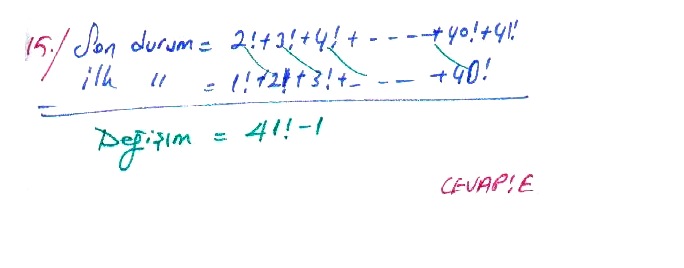 15./ Son durum = 2!+3!+4!+----+40!+41!
ilk " = 1!+2!+3!+-----+40!
Değişim = 41!-1
CEVAP:E